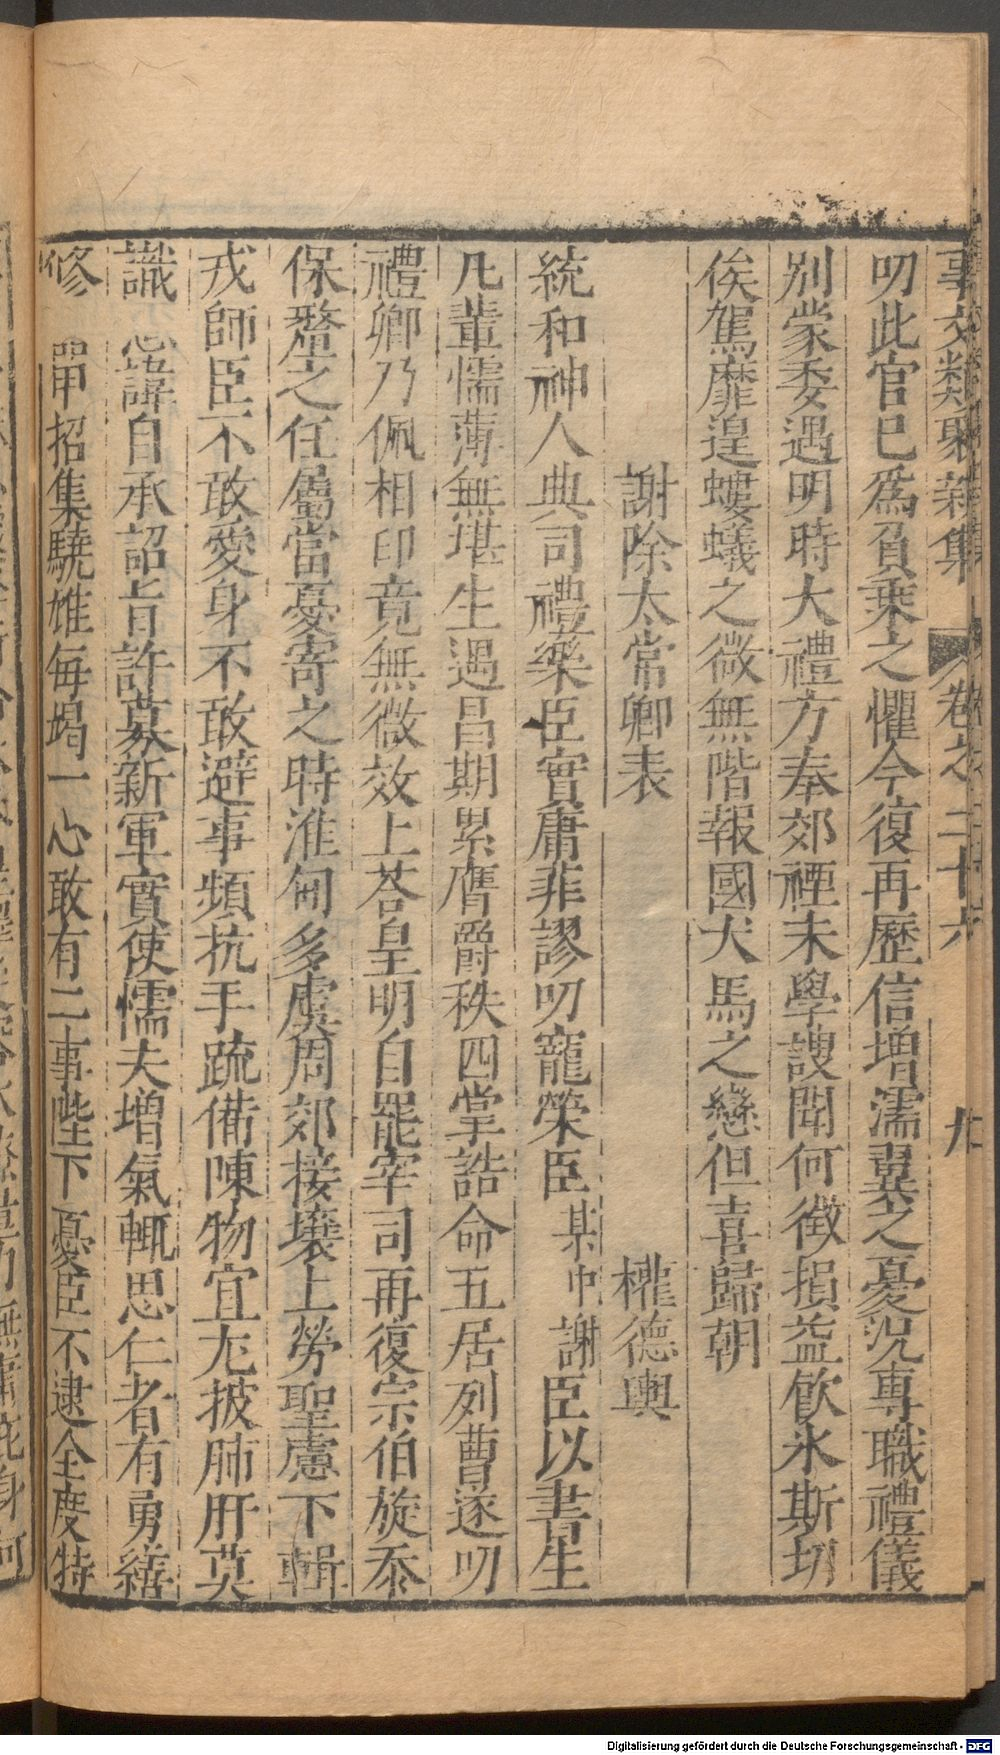 事文類聚新集 卷之二十六 九
叨此官已爲負乗之懼今復再歷信增濡翼之憂况專職禮儀
別蒙委遇明時大禮方奉郊禋末學謏聞何徵損益飲氷斯切
俟駕靡遑螻蟻之微無階報國犬馬之戀但喜歸朝
謝除太常卿表 權德輿
統和神人典司禮樂臣實庸菲謬叨寵榮臣某中謝臣以書生
凡輩懦薄無堪生遇昌期累膺爵秩四掌誥命五居列曹遂叨
禮卿乃佩相印竟無微效上荅皇明自罷宰司再復宗伯旋忝
保釐之任屬當憂寄之時淮甸多虞周郊接壤上勞聖慮下輯
戎師臣不敢愛身不敢避事頻抗手疏備陳物宜尨披肺肝莫
識 諱自承詔旨許募新軍實使懦夫增氣輒思仁者有勇繕
修 單招集驍雄每竭一心敢有二事陛下憂臣不逮全度特
Digitalisierung gefördert durch die Deutsche Forschungsgemeinschaft - DFG